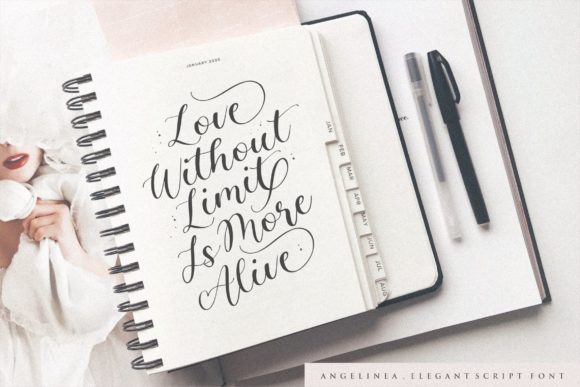 JANUARY 2020
Love
Without
Limit
Is More
Alive
JAN
FEB
MAR
APR
MAY
JUN
JUL
AUG
ANGELINEA . ELEGANT SCRIPT FONT